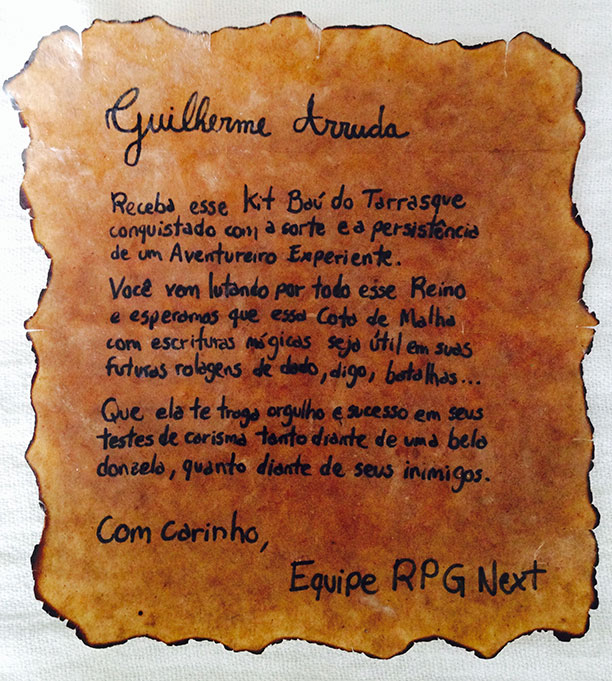 Guilherme Arruda
Receba esse Kit Baú do Tarrasque
conquistado com a sorte e a persistência
de um Aventureiro Experiente.
Você vem lutando por todo esse Reino
e esperamos que essa Cota de Malha
com escrituras mágicas seja útil em suas
futuras rolagens de dado, digo, batalhas...
Que ela te traga orgulho e sucesso em seus
testes de carisma tanto diante de uma bela
donzela, quanto diante de seus inimigos.
Com carinho,
Equipe RPG Next